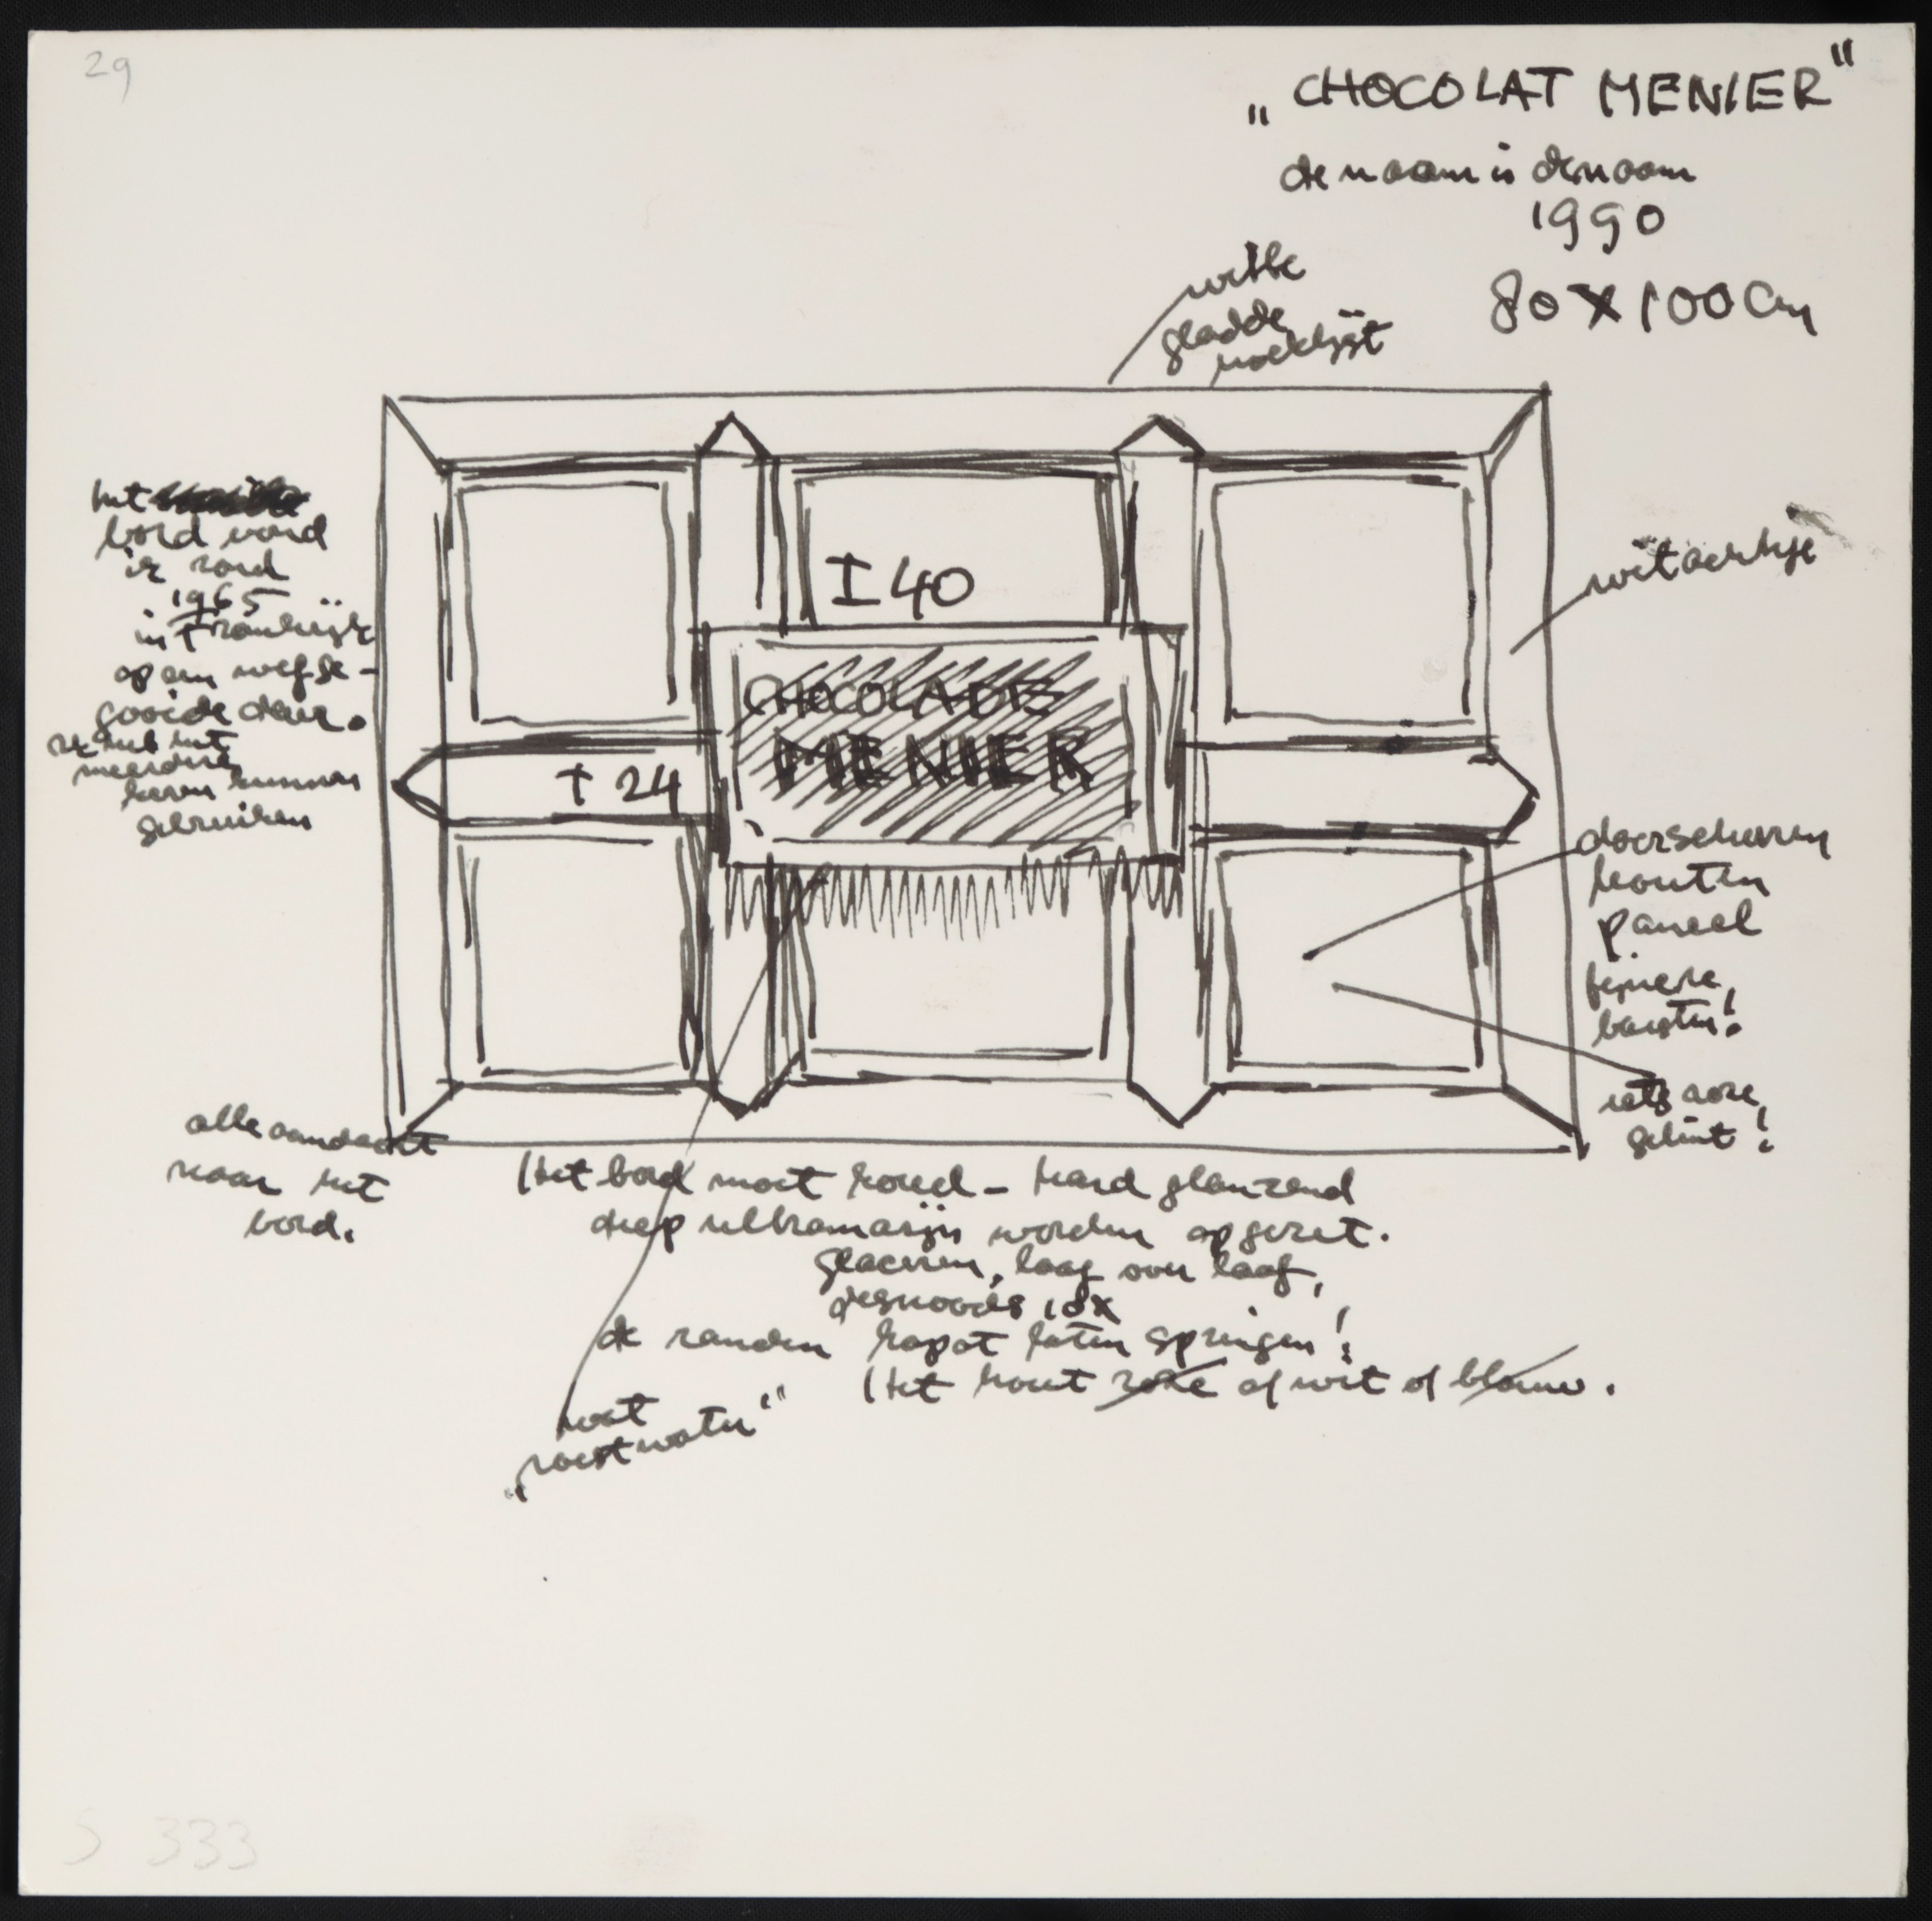 29
„CHOCOLAT MENIER"
de naam is de naam
1990
80 X 100 Cm
witte
gladde
het
bord vond
ik rond
1965
in Frankrijk
op een wegge-
gooide deur.
ik heb het
meerdere
keren kunnen
gebruiken
I 40
CHOCOLADE
MENIER
† 24
witachtige
doorschenen
houten
paneel
fijnere
barsten!
iets roze
getint!
alle aandacht
naar het
bord.
Het bord moet koud - hard glanzend
diep ultramarijn worden opgezet.
glaceren, laag over laag,
desnoods 10x
de randen kapot laten springen!
Het hout roze of wit of blauw.
wat
„roestwater"
S 333